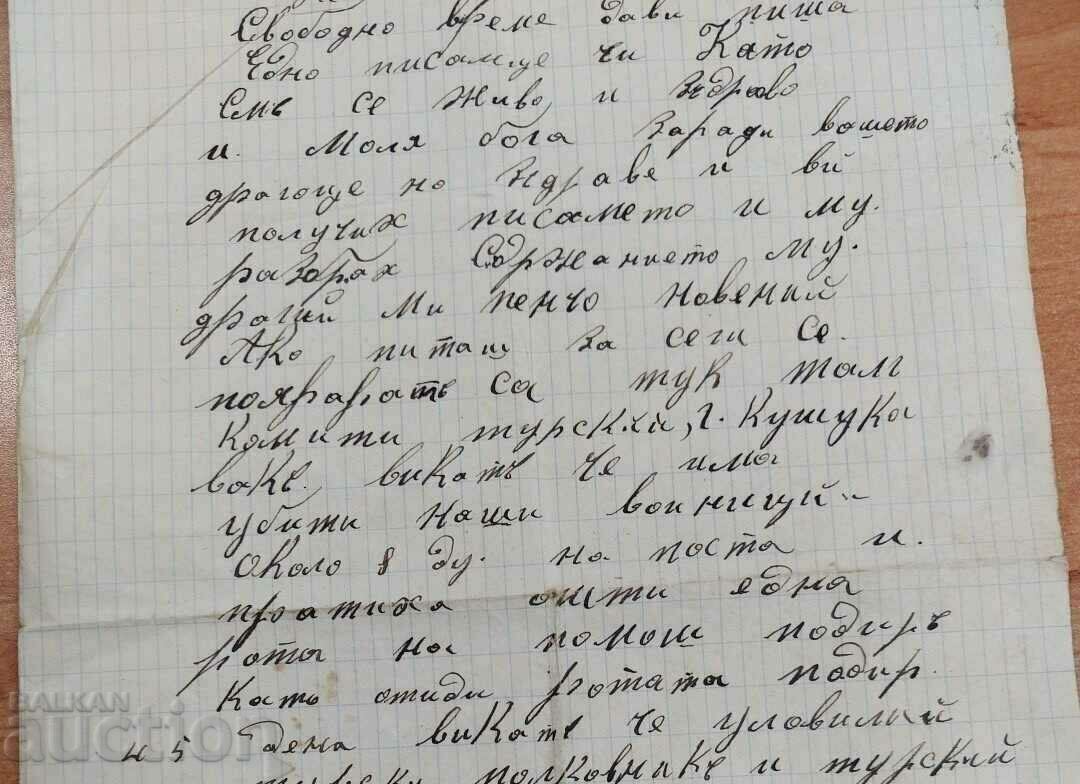 Свободно време дави пиша
Едно писамце чи Като
Смъ се живо и здраво
и. Моля бога заради вашето
драгоце но здраве и ви
получих писамето и му.
разбрах Сдржанието му.
драгий ми пенчо новений
Ако питаш за сеги се.
появяватъ са тук там
Комити турский, г. Кушука
вакъ. викатъ че има
убити наши воиниций
около 8 ду. на поста и.
пратиха ошти една
рота на помош подиръ
Като отиди ротата подир.
4 5 дена викатъ че уловилий
полковникъ и турский
BALKAN
auction